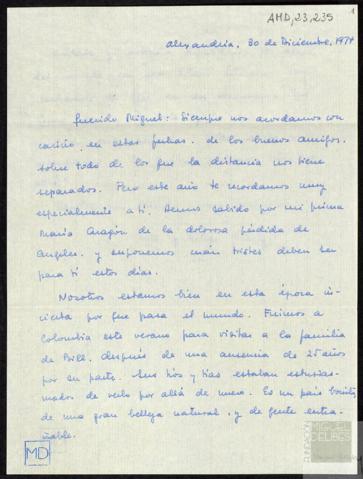 AMD,23,235
Alexandria, 30 de Diciembre, 1974
Querido Miguel: Siempre nos acordamos con
cariño, en estas fechas, de los buenos amigos,
sobre todo de los que la distancia nos tiene
separados. Pero este año te recordamos muy
especialmente a ti. Hemos sabido por mi prima
María Aragón de la dolorosa pérdida de
Angeles, y suponemos cuán tristes deben ser
para ti estos días.
Nosotros estamos bien en esta época in-
cierta por que pasa el mundo. Fuimos a
Colombia este verano para visitar a la familia
de Bill, después de una ausencia de 25 años
por su parte. Sus tíos y tías estaban entusias-
mados de verlo por allá de nuevo. Es un país bonito,
de una gran belleza natural, y de gente entra-
ñable.
MD
FUNDACIÓN
MIGUEL
DELIBES